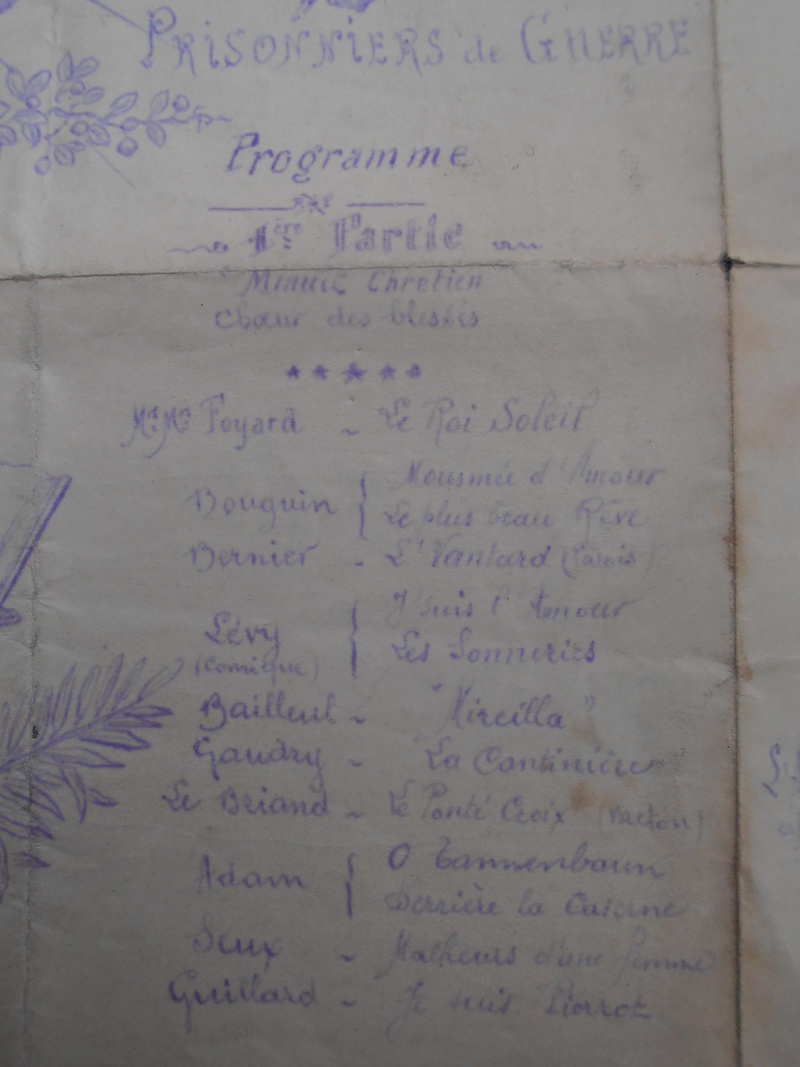 PRISONNIERS de GUERRE
Programme
1ère Partie
Minuit Chretien
Chœur des blessés
Foyard - Le Roi Soleil
Bouguin { Mousmée d'Amour
Le plus beau Rêve
Bernier - L'Vantard (Patois)
Lévy (Comique) { J'suis l'Amour
Les Sonneries
Bailleul - "Mireilla"
Gaudry - La Cantinière
Le Briand - Le Ponté Croix (Breton)
Adam { O Tannenbaum
Derrière la Caserne
Seux - Malheurs d'une femme
Guillard - Je suis Pierrot